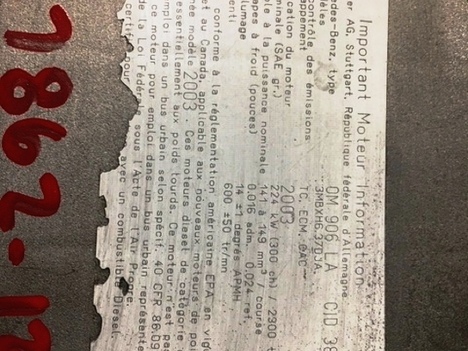 Important Moteur Information
er AG, Stuttgart, République fédérale d'Allemagne
des-Benz, type OM 906 LA CID 38
3MBXH6.37DJA
contrôle des émissions TC, ECM, CAC
appement
ication du moteur 2003
minale (SAE gr.) 224 kW (300 ch) / 2300 t
ble à la puissance nominale 141 à 149 mm³ / course
apes à froid (pouces) 0.016 adm. 0.024 ref.
llumage 14 ±1 degrés APMH
enti 600 ±50 tr/mn
conforme à la réglementation américaine EPA en vig
et au Canada, applicable aux nouveaux moteurs de po
née modèle 2003. Ces moteurs diesel de catégorie
essentiellement aux poids lourds. Ce moteur n'est pa
emploi dans un bus urbain selon spécif. 40 CFR 86.09
ce moteur pour emploi dans un bus urbain représente
de la loi fédér le sous l'Acte de l'Air Propre.
certifié pour avec un combustible Diesel.
7862-1